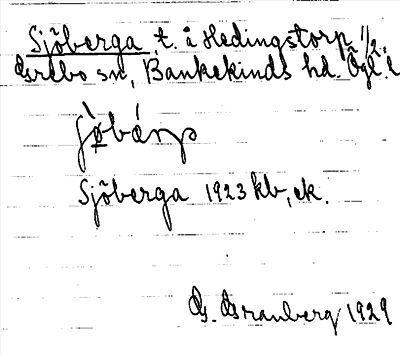 Sjöberga t. å Hedingstorp 1/2.
Asrebo sn, Bankekinds hd. Ögl.
Sjöberga 1923 kb, ek.
Granberg 1929